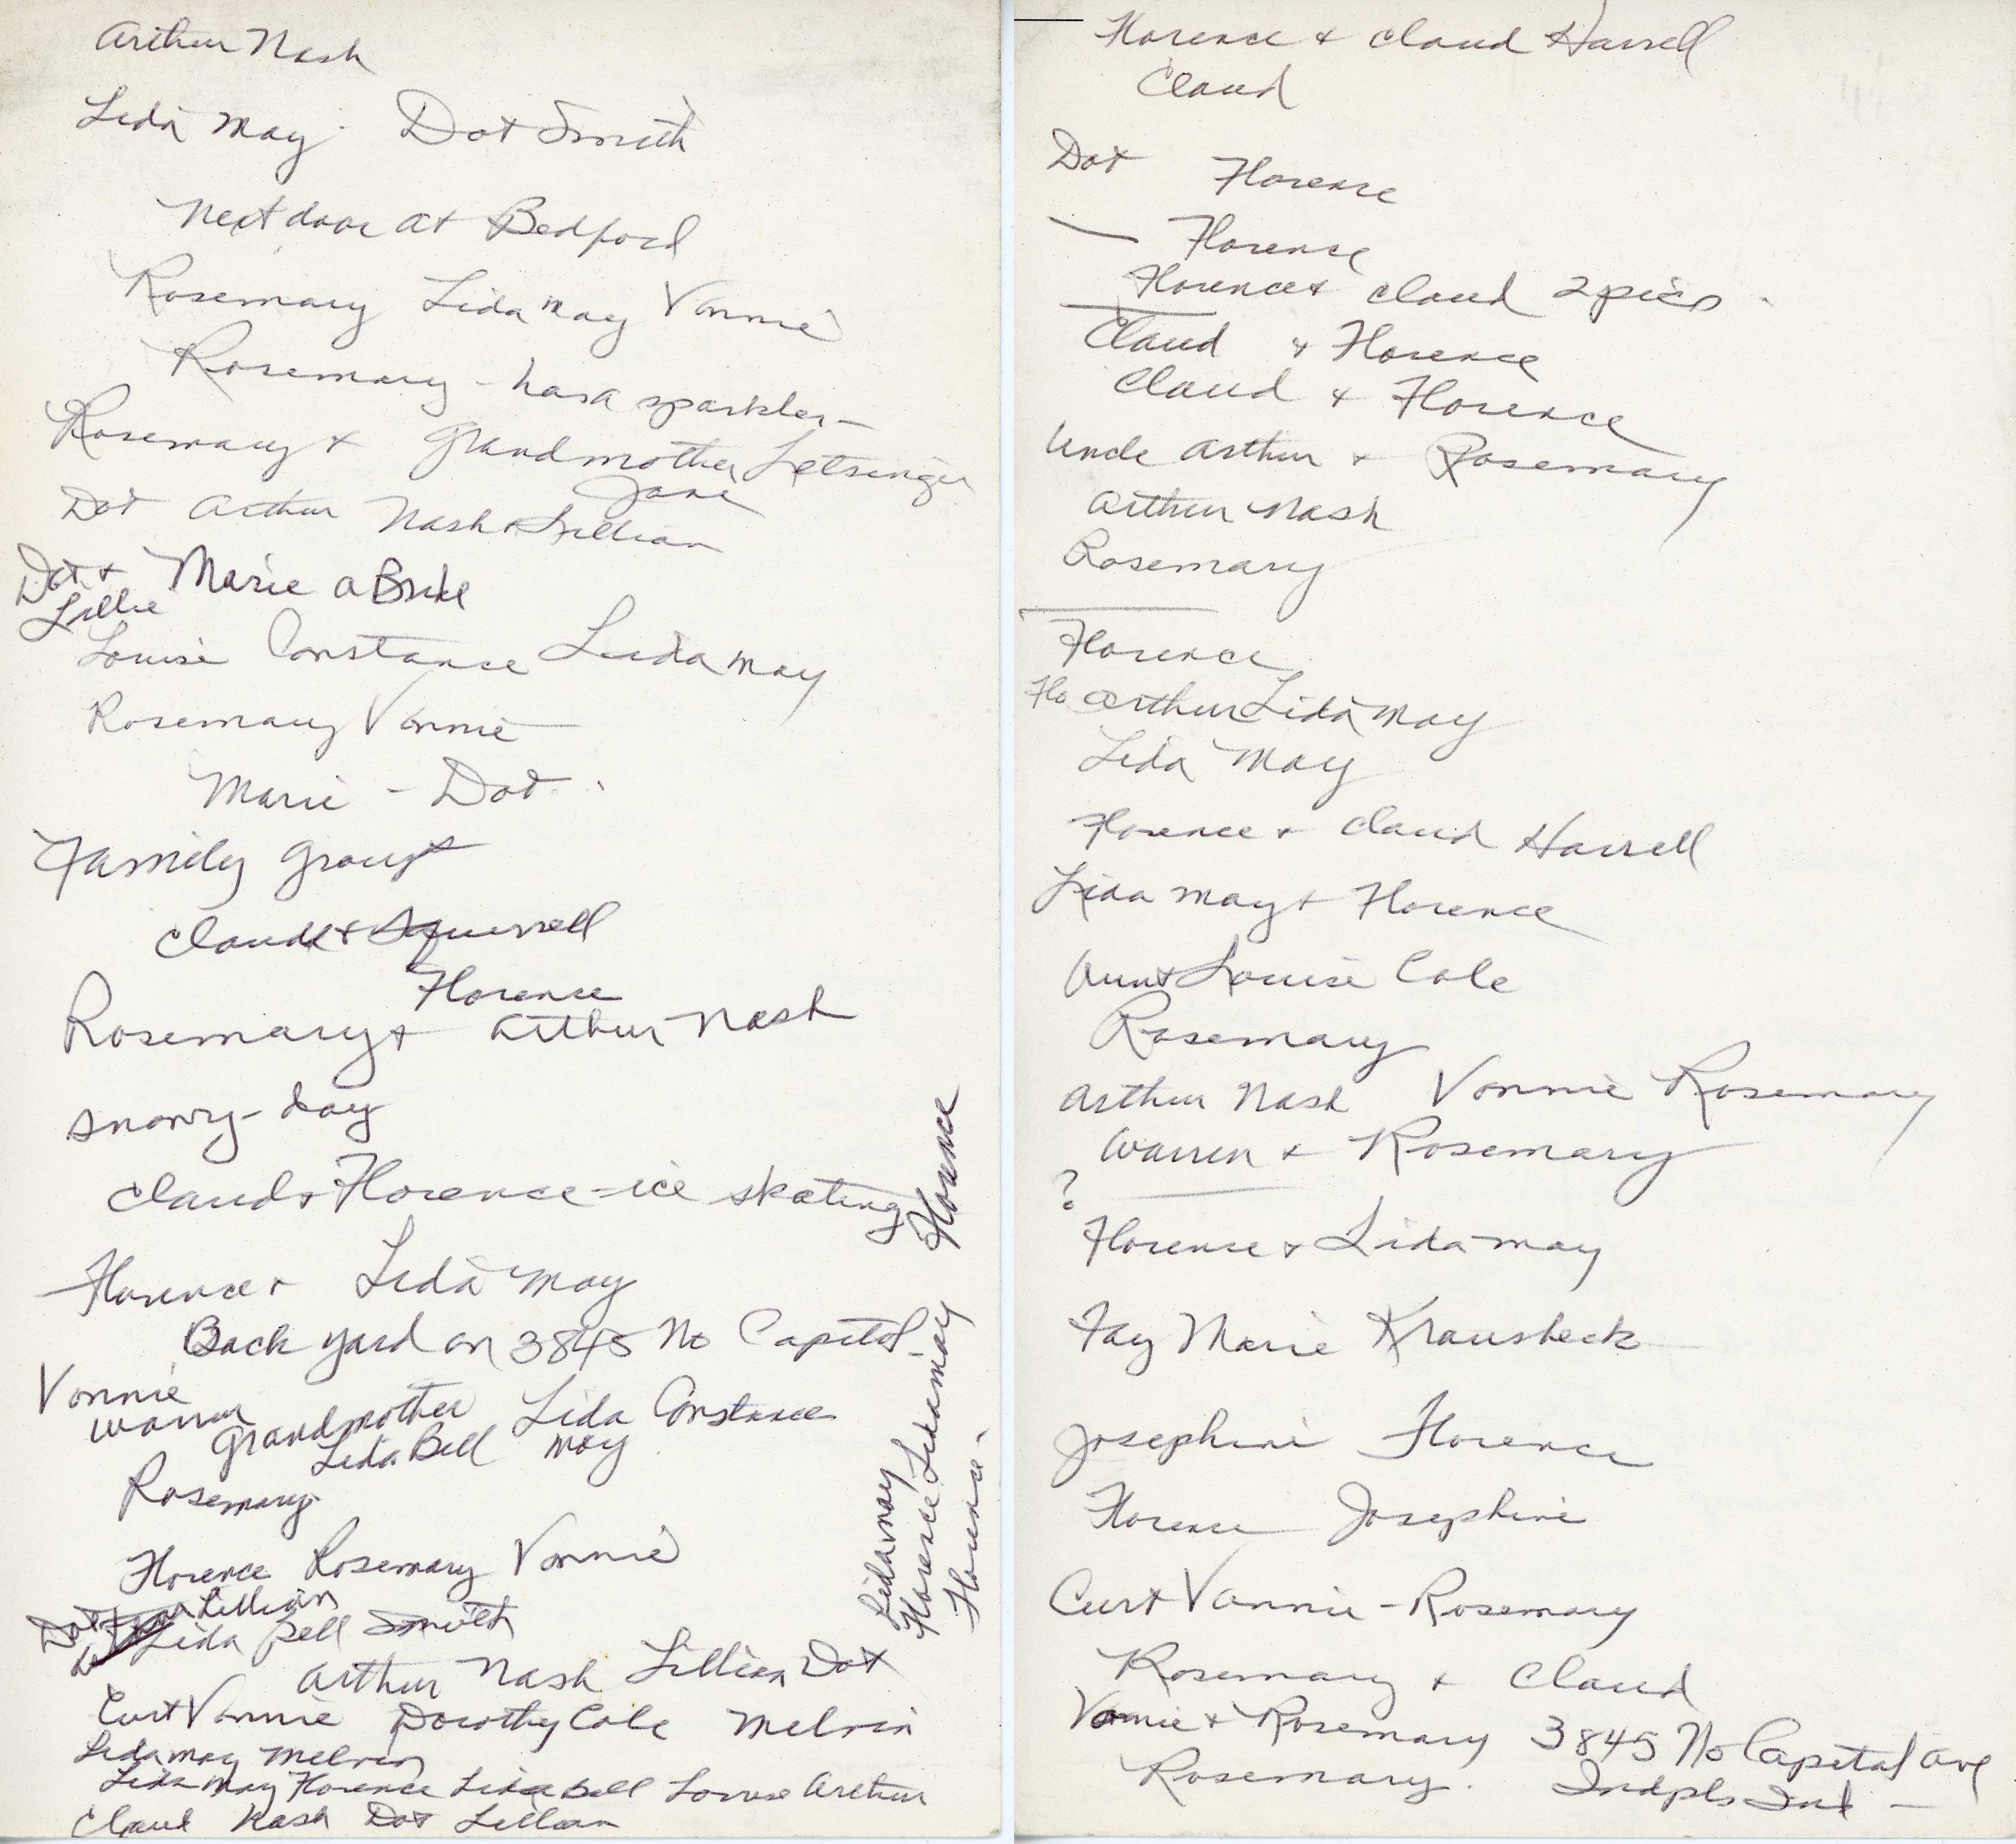 Arthur Nash
Lida May Dot Smith
Next door at Bedford
Rosemary Lida May Vonnie
Rosemary - has a sparkler -
Rosemary + Grandmother Letsinger
Jane
Dot Arthur Nash + Lillian
Dot + Marie a Bride
Lillie
Louise Constance Lida May
Rosemary Vonnie
Marie - Dot
Family Group
Claud + Squirrell
Florence
Rosemary + Arthur Nash
Snowy - day
Claud + Florence - ice skating
Florence + Lida May
Back yard on 3845 No Capitol
Vonnie
Warren
Grandmother Lida Constance
Lida Bell May
Rosemary
Florence Rosemary Vonnie
Lillian
Lida Bell Smith
Arthur Nash Lillian Dot
Curt Vonnie Dorothy Cole Melvin
Lida May Melvin
Lida May Florence Lida Bell Louise Arthur
Claud Nash Dot Lillian
Florence
Lida May
Florence Lida May
Florence.
Florence + Claud Harrell
Claud
Dot Florence
— Florence
Florence + Claud 2 pics.
Claud + Florence
Claud + Florence
Uncle Arthur + Rosemary
Arthur Nash
Rosemary
Florence
Flo Arthur Lida May
Lida May
Florence + Claud Harrell
Lida May + Florence
Aunt Louise Cole
Rosemary
Arthur Nash Vonnie Rosemary
Warren + Rosemary
?
Florence + Lida May
Fay Marie Krausbeck
Josephine Florence
Florence Josephine
Curt Vonnie - Rosemary
Rosemary + Claud
Vonnie + Rosemary 3845 No Capital Ave
Rosemary. Indpls Ind —